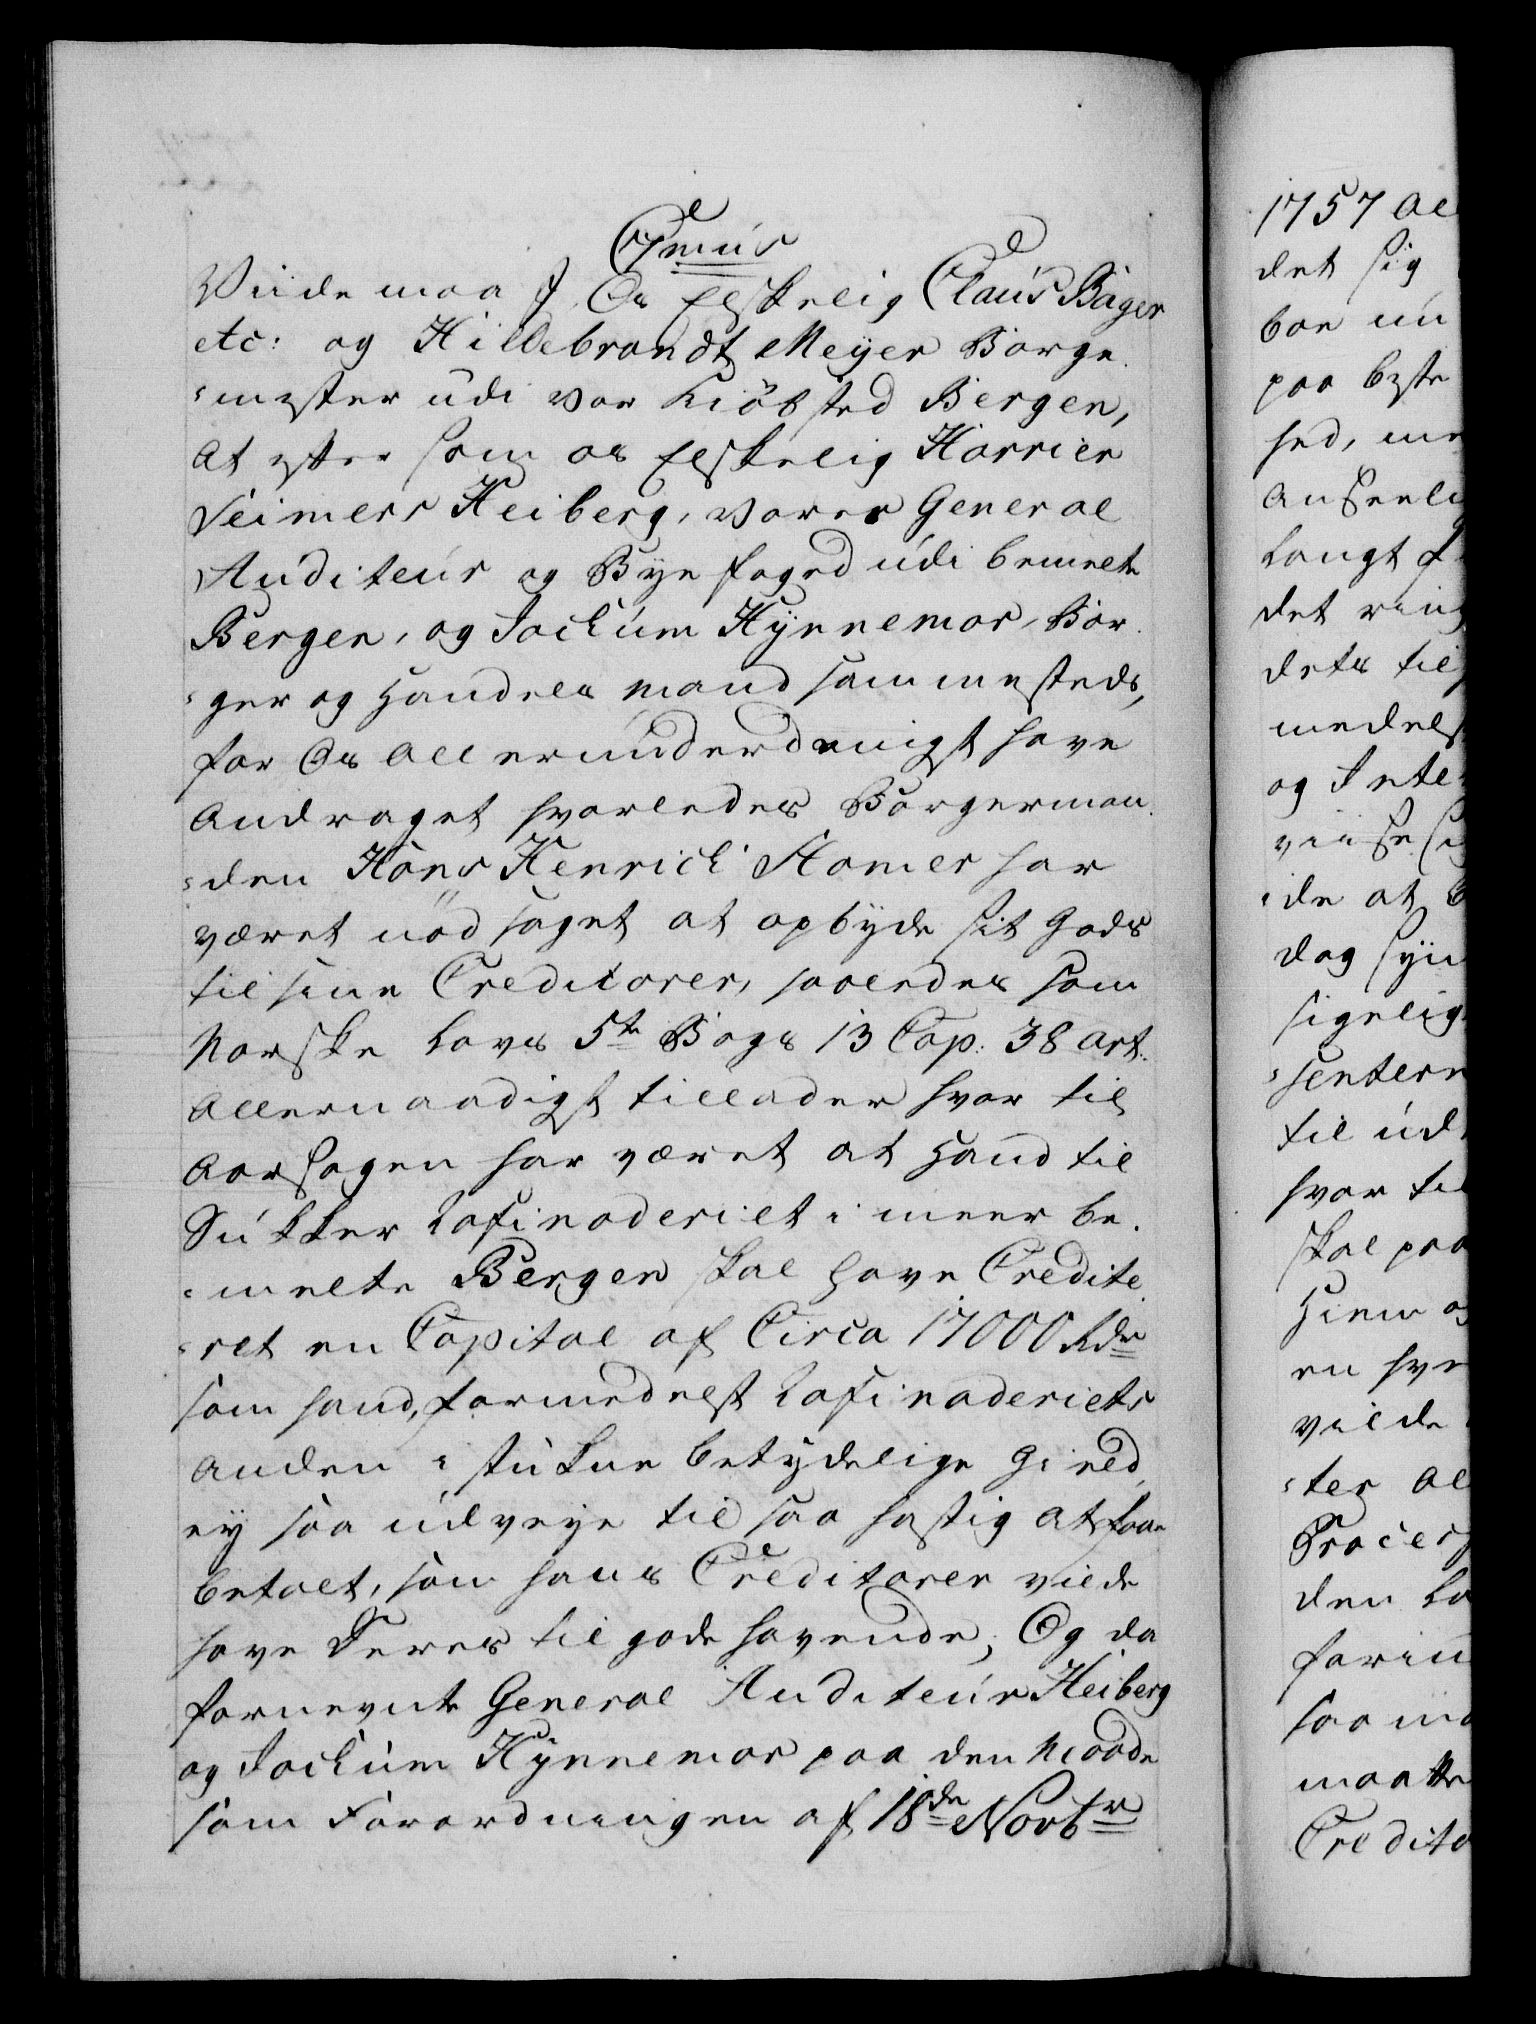 C7mus
Viide maa I, Os Elskelig Claus Båger
etc: og Hillebrandt Meÿer Borge
-mester udi vor Kiöbsted Bergen,
at efter som os Elskelig Harrien
Seimers Heiberg, vores General
Auditeur og Byefoged udi bemelte
Bergen, og Jochum Hÿnnemor, Bor
-ger og Handels mand sammesteds,
for Os allerunderdanigst have
andraget hvorledes Borgerman
-den Hans Henrich Stamer har
været nödsaget at opbyde sit Gods
til sine Creditorer, saaledes som
Norske Lovs 5te Bogs 13 Cap: 38 art:
allernaadigst tillader hvor til
aarsagen har været at Hand til
Sukker Rafinaderiet i meer be-
-melte Bergen skal have Credite
-ret en Capital af Circa 17000 Rdr
som hand, formedelst Rafinaderiets
anden i stikkne betÿdelige Gield,
ej saa udveye til saa hastig at faae
betalt, som hans Creditorer vilde
have deres til gode havende, Og da
fornevnte General Auditeur Heiberg
og Jochum Hÿnnemor paa den Maade
som Forordningen af 18de Novbr
1757 al
det sig
bor un
paa beste
hed, me
anseeli
langt f
det ring
dets til
medels
og Inte
viise si
-de at b
dog syn
sigelig
-senter
til ud
hvor ti
skal paa
Hiem o
en hve
vilde
-ter al
Process
den Lo
forin
saa ma
maatte
Credito